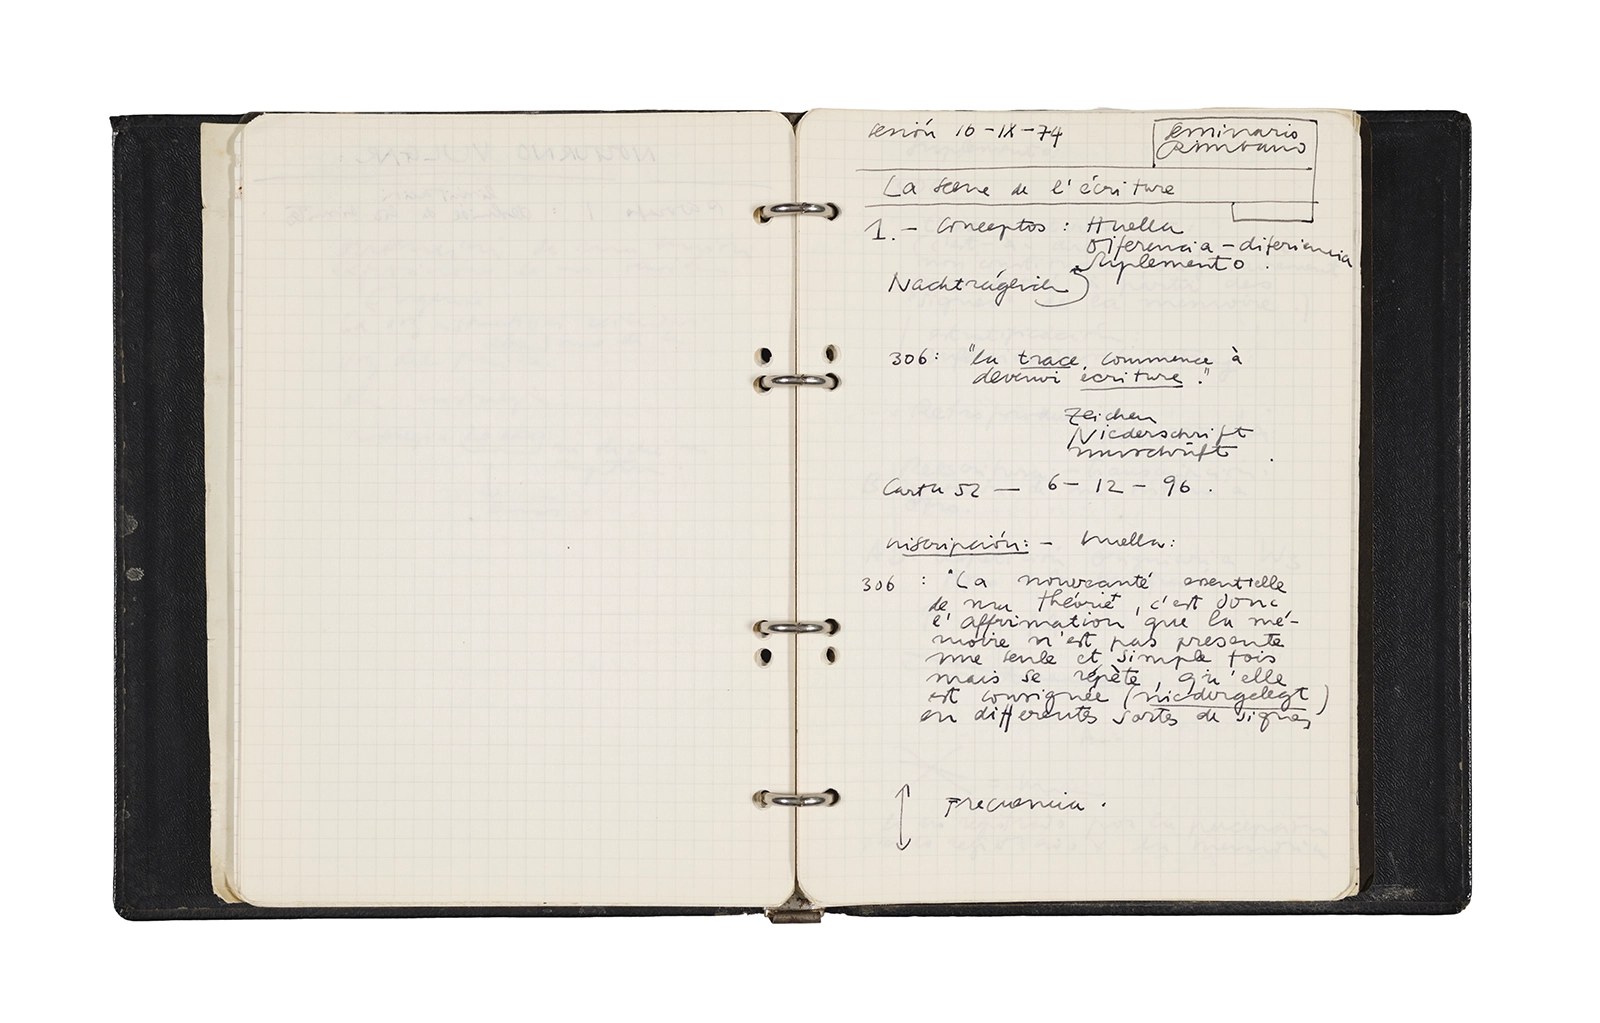 sesión 16-IX-74
seminario
Rimbaud
La scene de l'écriture
1.- Conceptos: Huella
Diferencia-diferiencia
Suplemento.
Nachträglich
306: "la trace commence à
devenir écriture."
Zeichen
Niederschrift
Umschrift.
Carta 52 — 6-12-96.
inscripción:- huella:
306: "La nouveauté essentielle
de ma théorie, c'est donc
l'affirmation que la mé-
moire n'est pas presente
une seule et simple fois
mais se répète, qu'elle
est consignée (niedergelegt)
en differentes sortes de signes
Frecuencia.